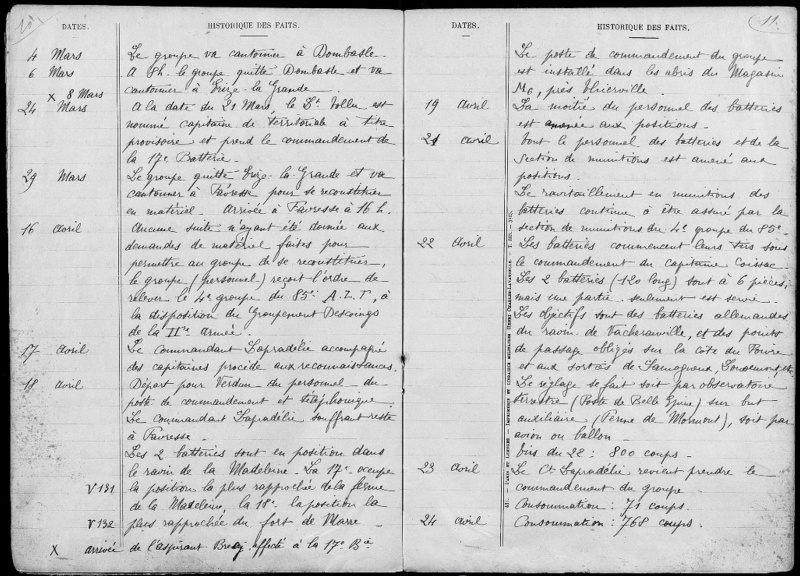 10
DATES. HISTORIQUE DES FAITS.
4 Mars Le groupe va cantonner à Dombasle.
6 Mars A 8h. le groupe quitte Dombasle et va
cantonner à Erize-la-Grande.
x 8 Mars
24 Mars A la date du 21 Mars, le Lt Vollu est
nommé capitaine de territoriale à titre
provisoire et prend le commandement de
la 17e Batterie.
29 Mars Le groupe quitte Erize-la-Grande et va
cantonner à Favresse pour se reconstituer
en matériel. Arrivée à Favresse à 16 h.
16 Avril Aucune suite n'ayant été donnée aux
demandes de matériel faites pour
permettre au groupe de se reconstituer,
le groupe (personnel) reçoit l'ordre de
relever le 4e groupe du 85e A.L.T, à
la disposition du Groupement Descoings
de la IIe armée.
17 Avril Le commandant Lapradélie accompagné
des capitaines procède aux reconnaissances.
18 Avril Départ pour Verdun du personnel du
poste de commandement et téléphonique.
Le commandant Lapradélie souffrant reste
à Favresse.
Les 2 batteries sont en position dans
le ravin de la Madeleine. La 17e occupe
V 131 la position la plus rapprochée de la ferme
de la Madeleine, la 18e la position la
V 132 plus rapprochée du fort de Marre
x arrivée de l'aspirant affecté à la 17e Bie
11
DATES. HISTORIQUE DES FAITS.
Le poste de commandement du groupe
est installé dans les abris du Magasin
M6, près Thierville.
19 Avril La moitié du personnel des batteries
est amenée aux positions.
21 Avril Tout le personnel des batteries et de la
Section de munitions est amené aux
positions.
Le ravitaillement en munitions des
batteries continue à être assuré par la
section de munitions du 4e groupe du 85e.
22 Avril Les batteries commencent leurs tirs sous
le commandement du capitaine Coissac.
Les 2 batteries (120 long) sont à 6 pièces,
mais une partie seulement est servie.
Les objectifs sont des batteries allemandes
du ravin de Vacherauville, et des points
de passage obligés sur la côte du Poivre
et aux sorties de Samogneux, Louvemont, etc.
Le réglage se fait soit par observatoire
terrestre (Poste de Belle Epine) sur but
auxiliaire (Ferme de Mormont), soit par
avion ou ballon.
Tirs du 22 : 800 coups.
23 Avril Le Ct Lapradélie revient prendre le
commandement du groupe
Consommation : 71 coups.
24 Avril Consommation : 768 coups.